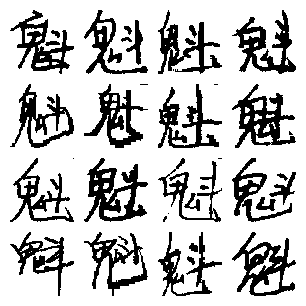 魁魁魁魁
魁魁魁魁
魁魁魁魁
魁魁魁魁